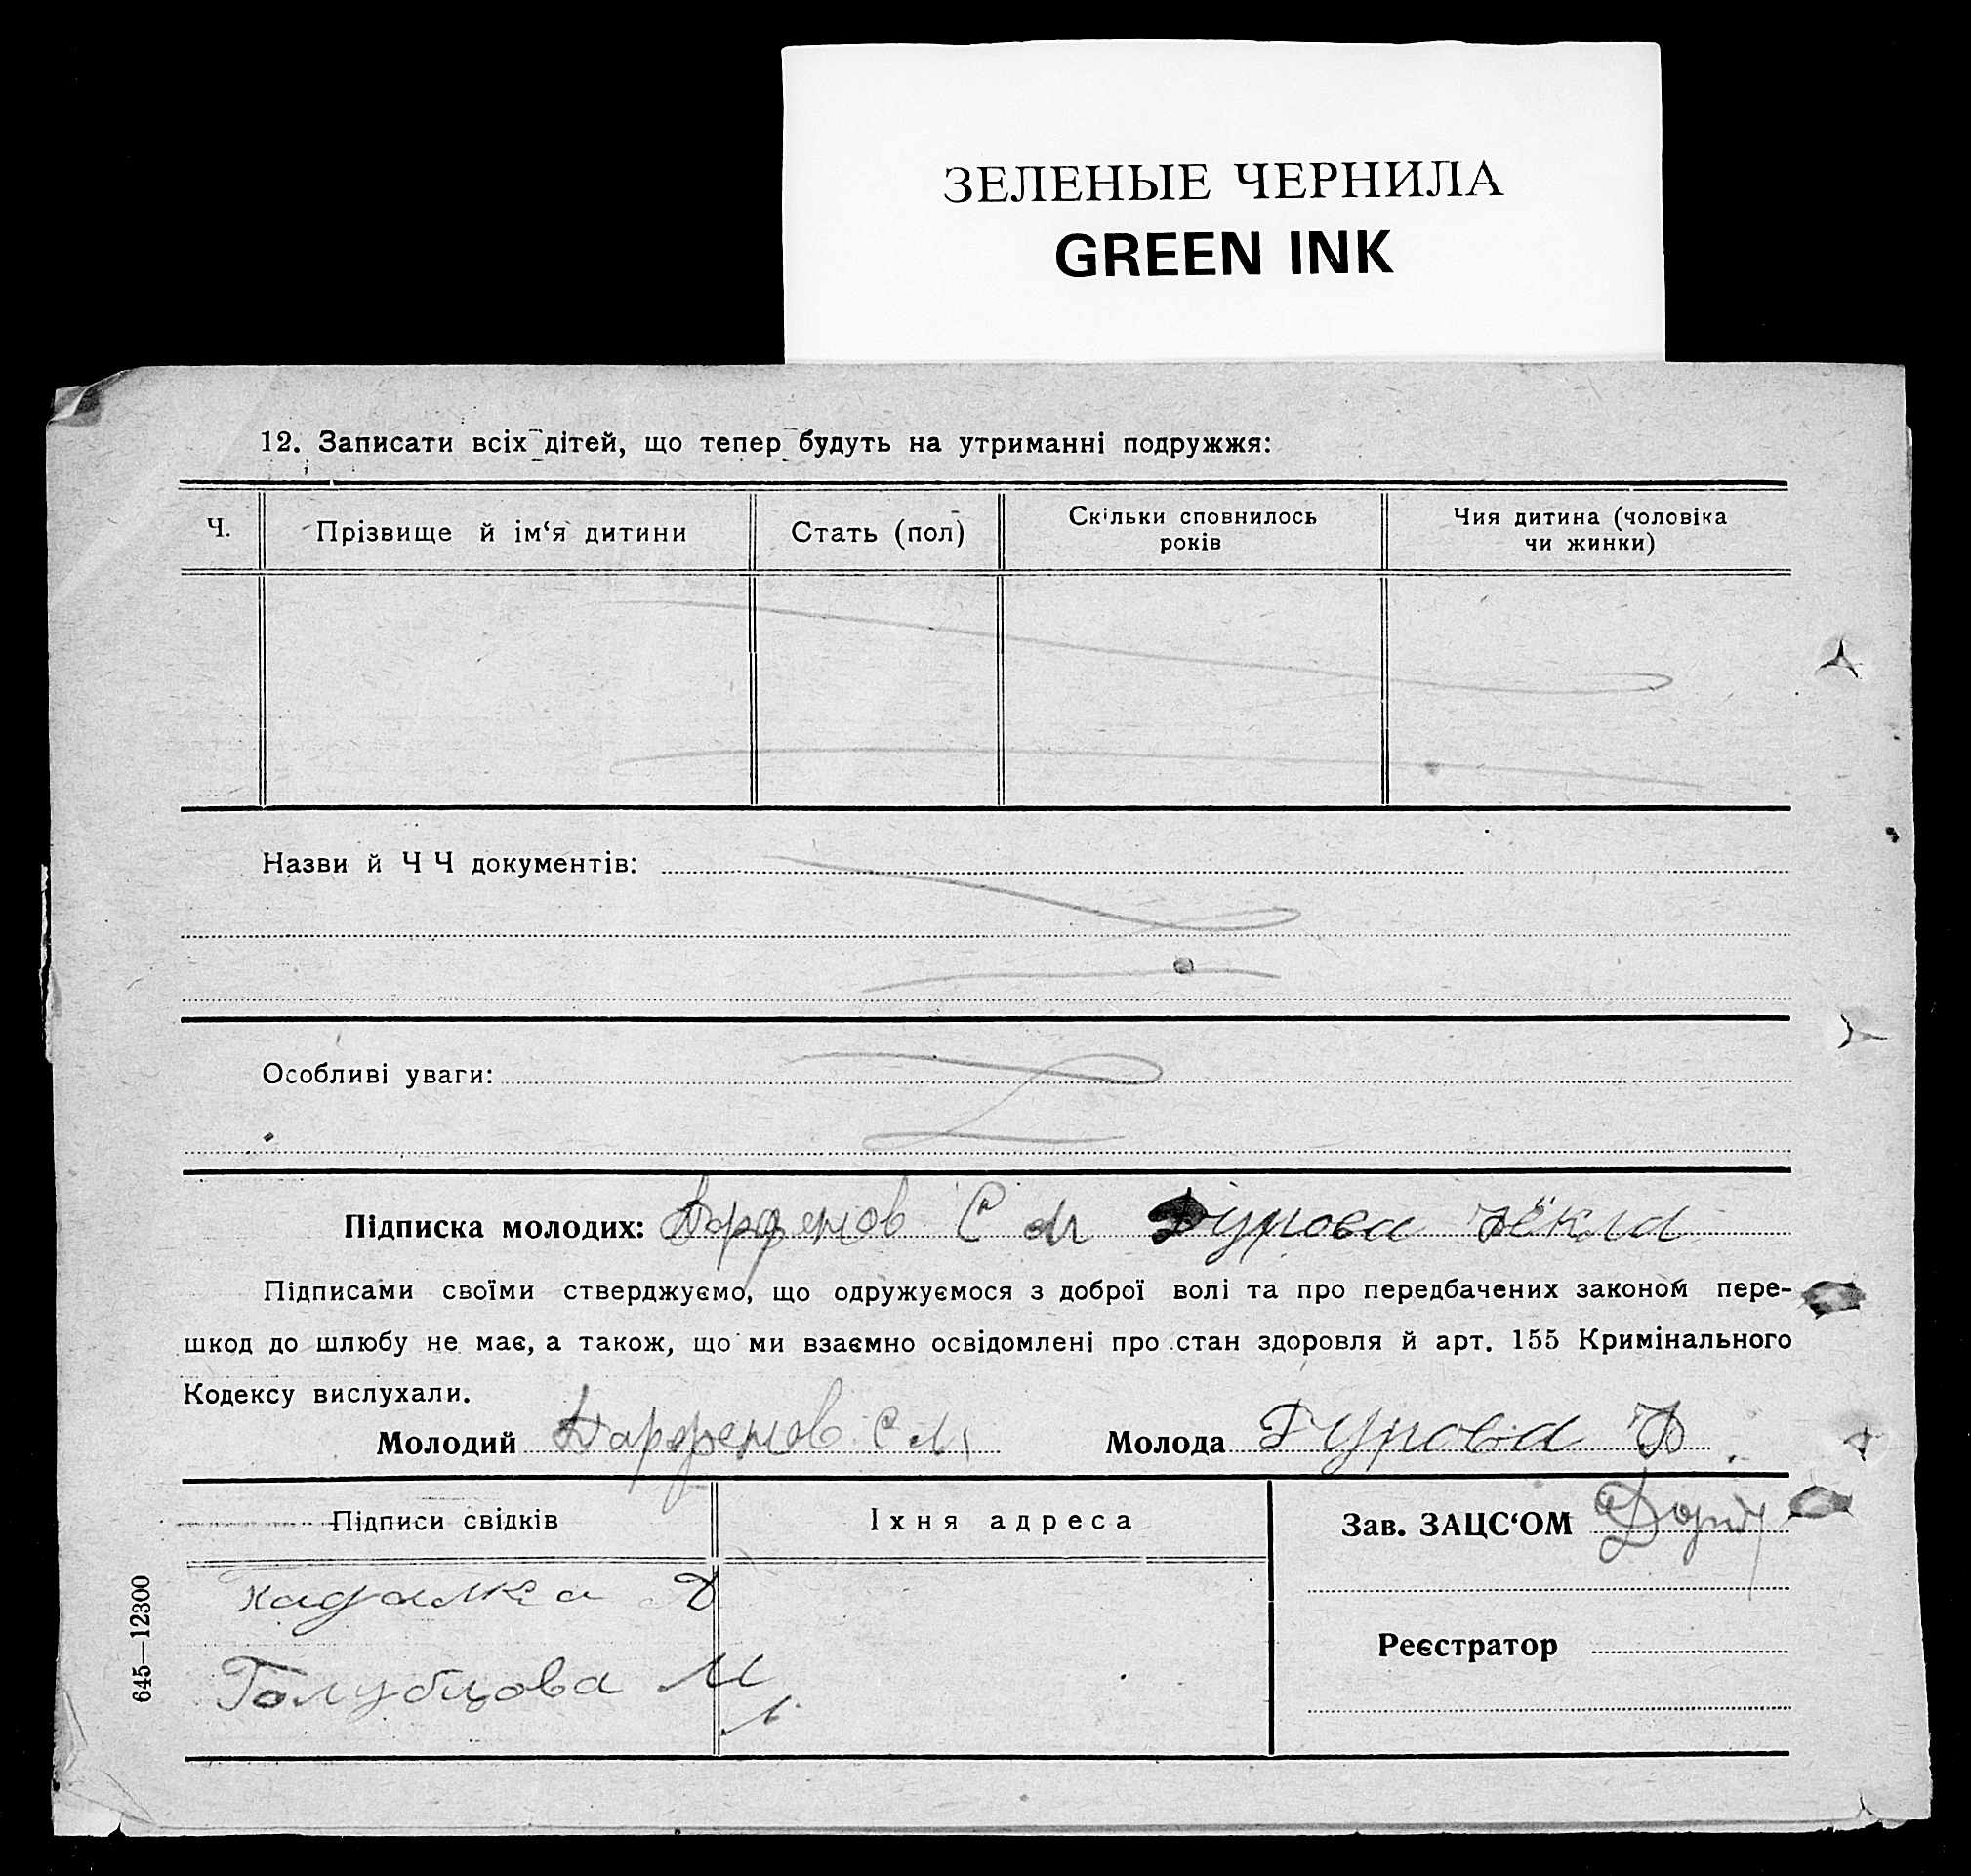 ЗЕЛЕНЫЕ ЧЕРНИЛА
GREEN INK
12. Записати всіх дітей, що тепер будуть на утриманні подружжя:
Ч.
Прізвище й ім‘я дитини
Стать (пол)
Скільки сповнилось
років
Чия дитина (чоловіка
чи жинки)
Назви й Ч Ч документів:
Особливі уваги:
Підписка молодих: Парфенов С М Гурова Фёкла
Підписами своїми стверджуємо, що одружуємося з доброї волі та про передбачених законом пере-
шкод до шлюбу не має, а також, що ми взаємно освідомлені про стан здоровля й арт. 155 Кримінального
Кодексу вислухали.
Молодий Парфенов С М Молода Гурова Ф
Підписи свідків
Їхня адреса
Зав. ЗАЦС‘ОМ
Голубцова М
Реєстратор
645—12300